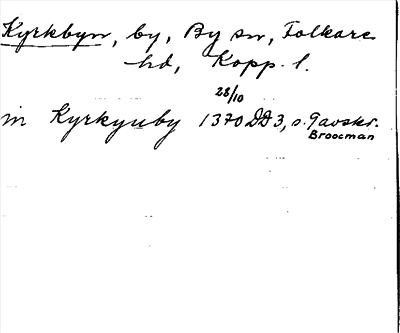 Kyrkbyn, by, By sn, Folkare
hd, Kopp. l.
28/10
in Kyrkyuby 1370 DD3, s. 9 avskr.
Broocman